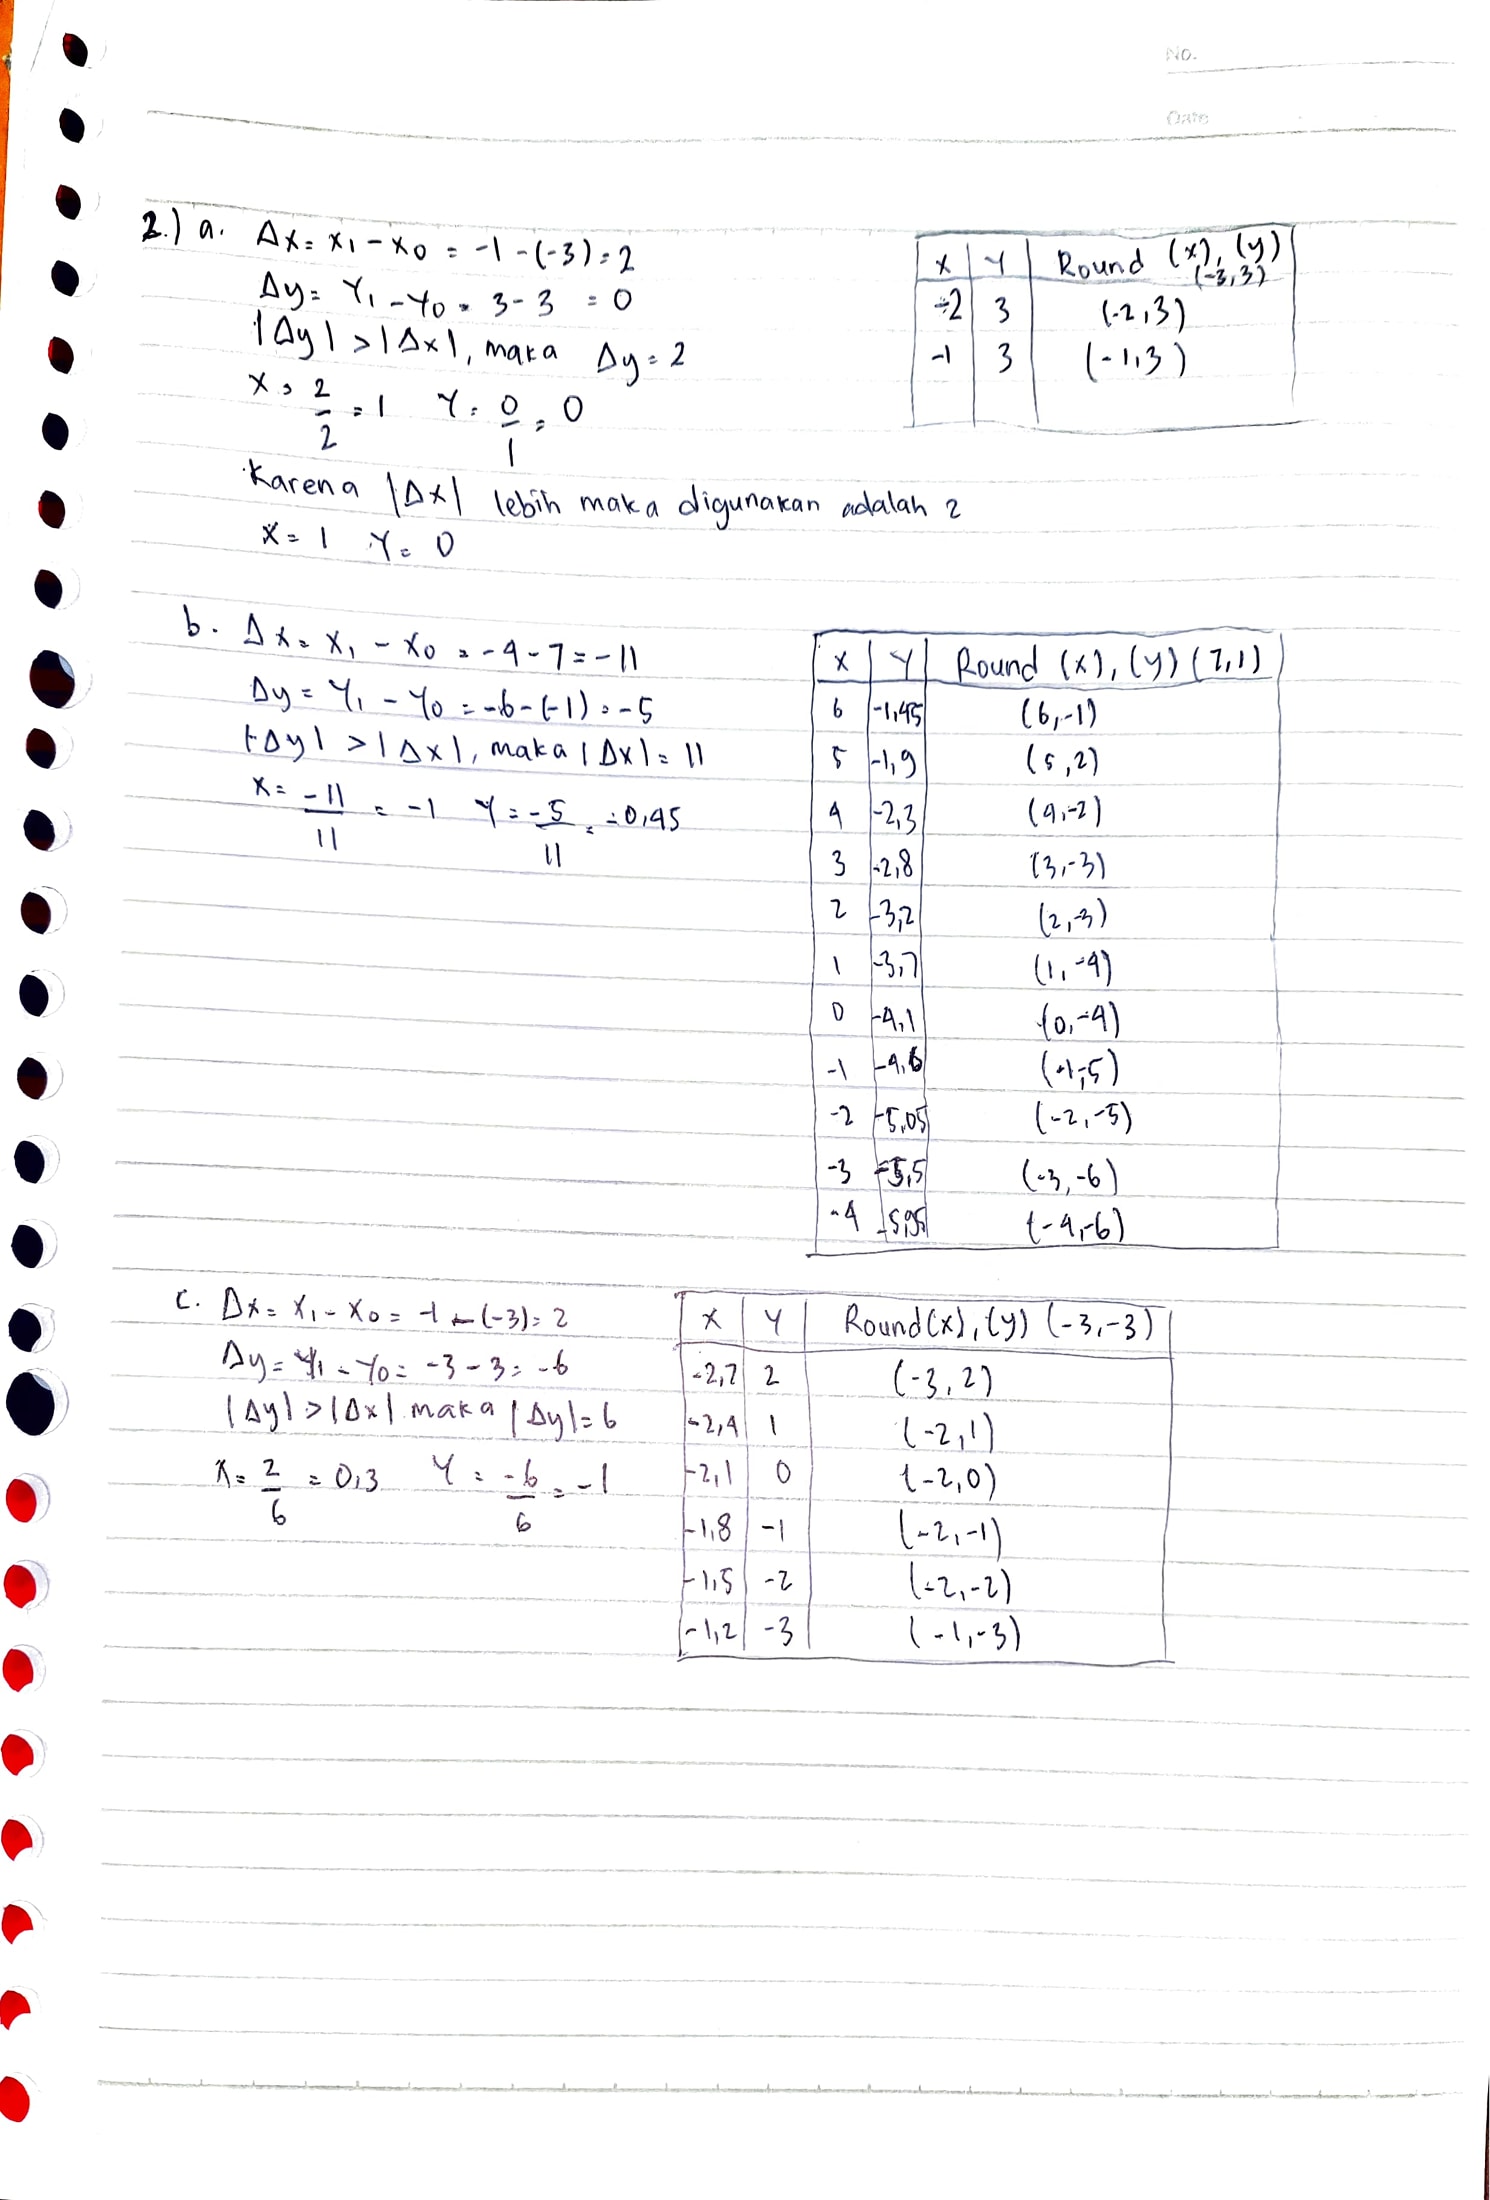 No.
Date
2.) a. Δx = x1 - x0 = -1 - (-3) = 2
Δy = Y1 - Y0 = 3 - 3 = 0
|Δy| > |Δx|, maka Δy = 2
x = 2/2 = 1 Y = 0/1 = 0
Karena |Δx| lebih maka digunakan adalah 2
X = 1 Y = 0
X Y Round (x), (y) (-3,3)
-2 3 (-2,3)
-1 3 (-1,3)
b. Δx = x1 - x0 = -4 - 7 = -11
Δy = Y1 - Y0 = -6 - (-1) = -5
|Δy| > |Δx|, maka |Δx| = 11
X = -11/11 = -1 Y = -5/11 = -0,45
X Y Round (x), (y) (7,1)
6 -1,45 (6,-1)
5 -1,9 (5,2)
4 -2,3 (4,-2)
3 -2,8 (3,-3)
2 -3,2 (2,-3)
1 -3,7 (1,-4)
0 -4,1 (0,-4)
-1 -4,6 (-1,-5)
-2 -5,05 (-2,-5)
-3 -5,5 (-3,-6)
-4 -5,95 (-4,-6)
c. Δx = x1 - x0 = -1 - (-3) = 2
Δy = Y1 - Y0 = -3 - 3 = -6
|Δy| > |Δx| maka |Δy| = 6
X = 2/6 = 0,3 Y = -6/6 = -1
X Y Round(x), (y) (-3,-3)
-2,7 2 (-3,2)
-2,4 1 (-2,1)
-2,1 0 (-2,0)
-1,8 -1 (-2,-1)
-1,5 -2 (-2,-2)
-1,2 -3 (-1,-3)